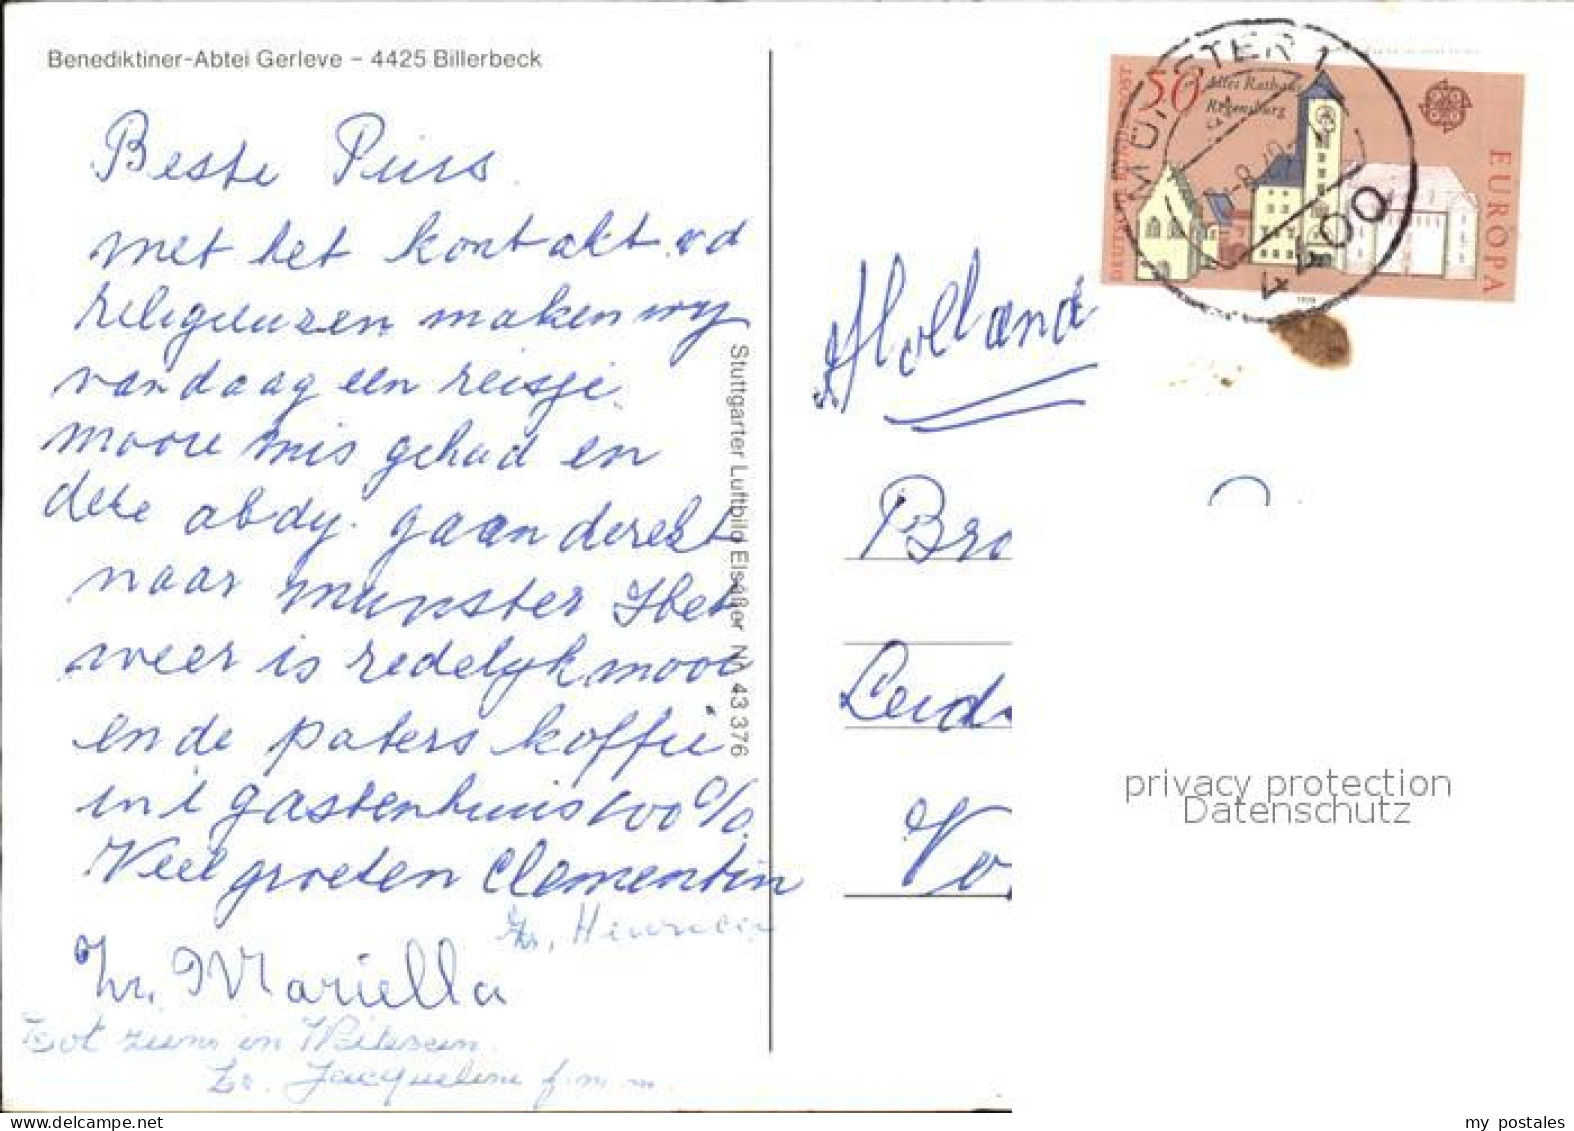 Benediktiner-Abtei Gerleve – 4425 Billerbeck
Beste Puis
met het kontakt. v d
religieuzen maken wy
vandaag een reisje.
mooie mis gehad en
deze abdy. gaan derekt
naar munster Het
weer is redelyk mooi
en de paters koffie
in 't gastenhuis 100%.
Veel groeten Clementin
Zr. Mariella
Tot ziens in
Zr. Jacqueline f.m.m.
Stuttgarter Luftbild Elsäßer Nr. 43 376
DEUTSCHE BUNDESPOST
50
Altes Rathaus
Regensburg
EUROPA
1978
MÜNSTER 1
4400
Holland
Bro
Leid
Vo
privacy protection
Datenschutz
my postales